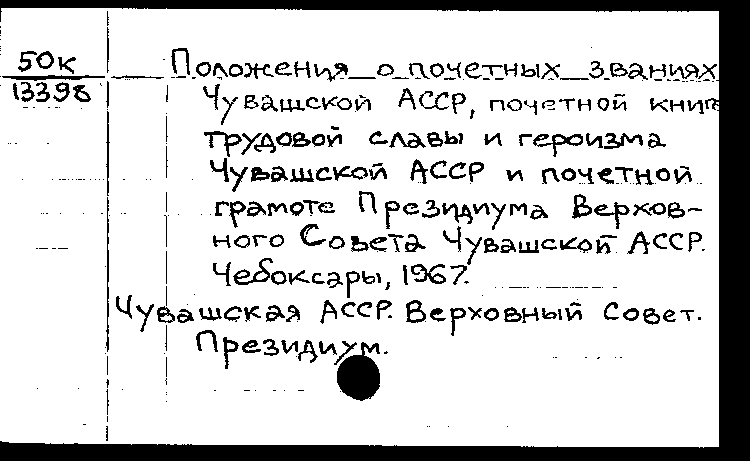 50к
13398
Положения о почетных званиях
Чувашской АССР, почетной книге
трудовой славы и героизма
Чувашской АССР и почетной
грамоте Президиума Верхов-
ного Совета Чувашской АССР.
Чебоксары, 1967.
Чувашская АССР. Верховный Совет.
Президиум.